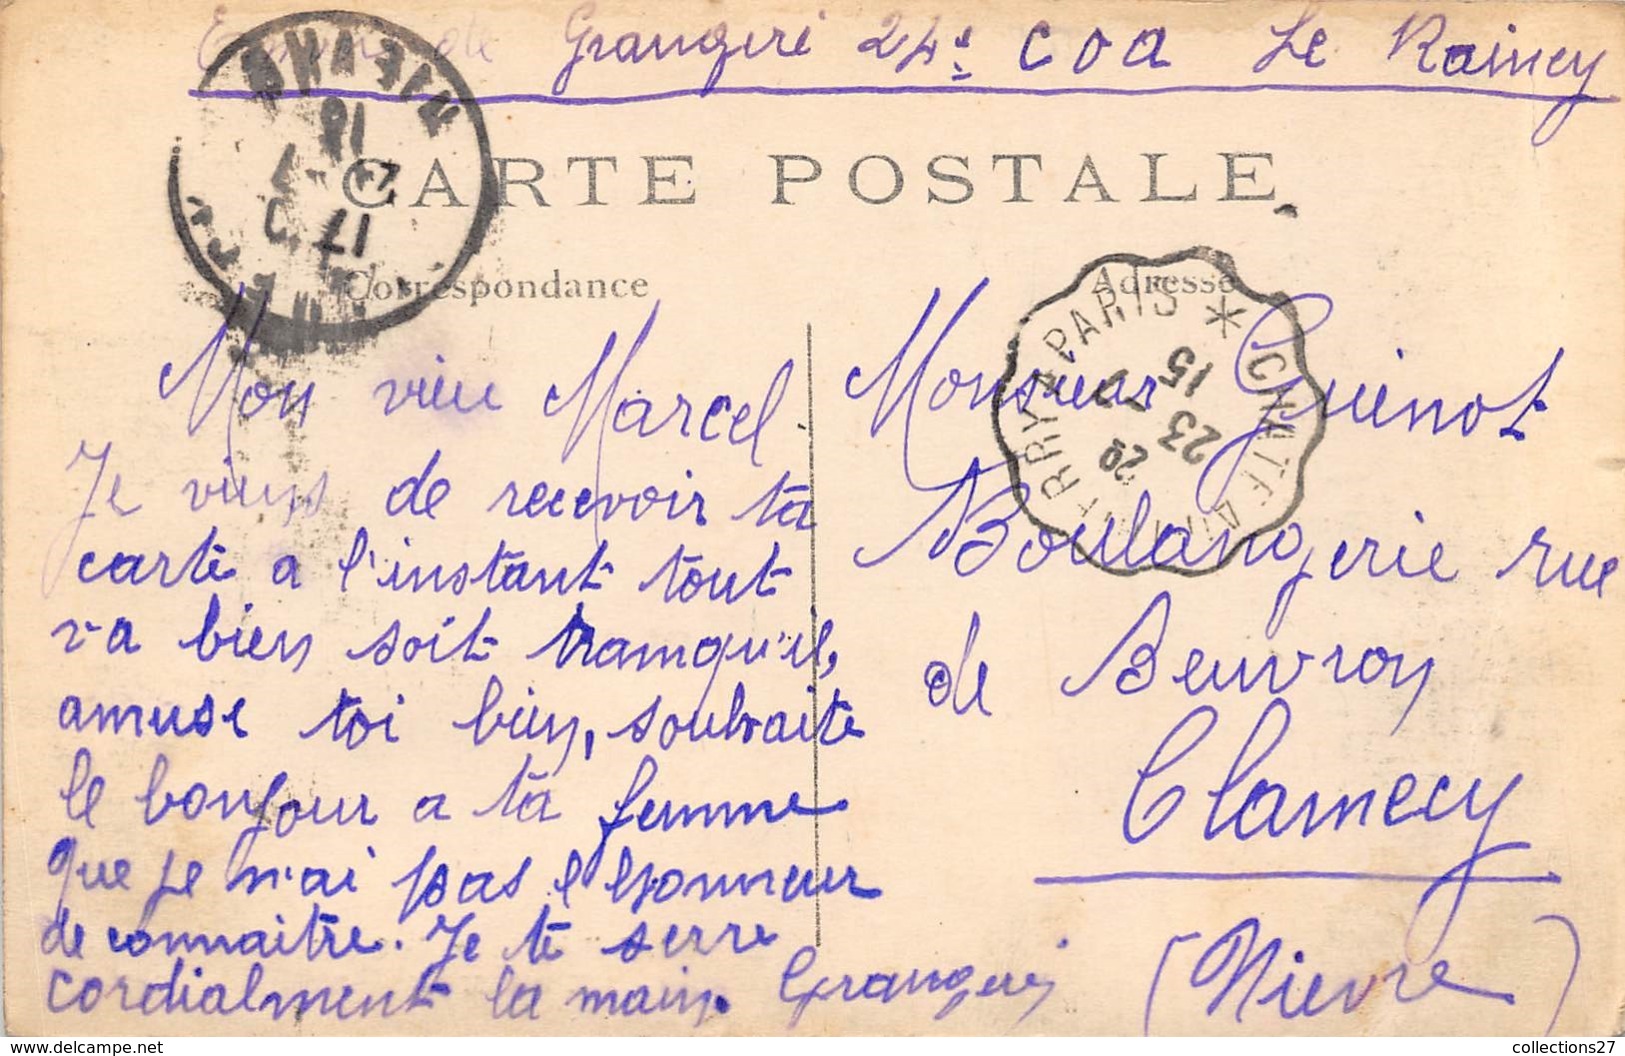 de Grangeré 24e COA Le Raincy
CARTE POSTALE
Correspondance
Adresse
Mon vieu Marcel
Je viens de recevoir ta
carte a l'instant tout
va bien soit tranquil,
amuse toi bien, souhaite
le bonjour a ta femme
que je n'ai pas l'honneur
de connaitre. Je te serre
cordialment la main. Grangeré
Monsieur Guenot
Boulangerie rue
de Beuvron
Clamecy
(Nievre)
NIEVRE
18
2-7
17
PARIS *
15
23
2º
collections27